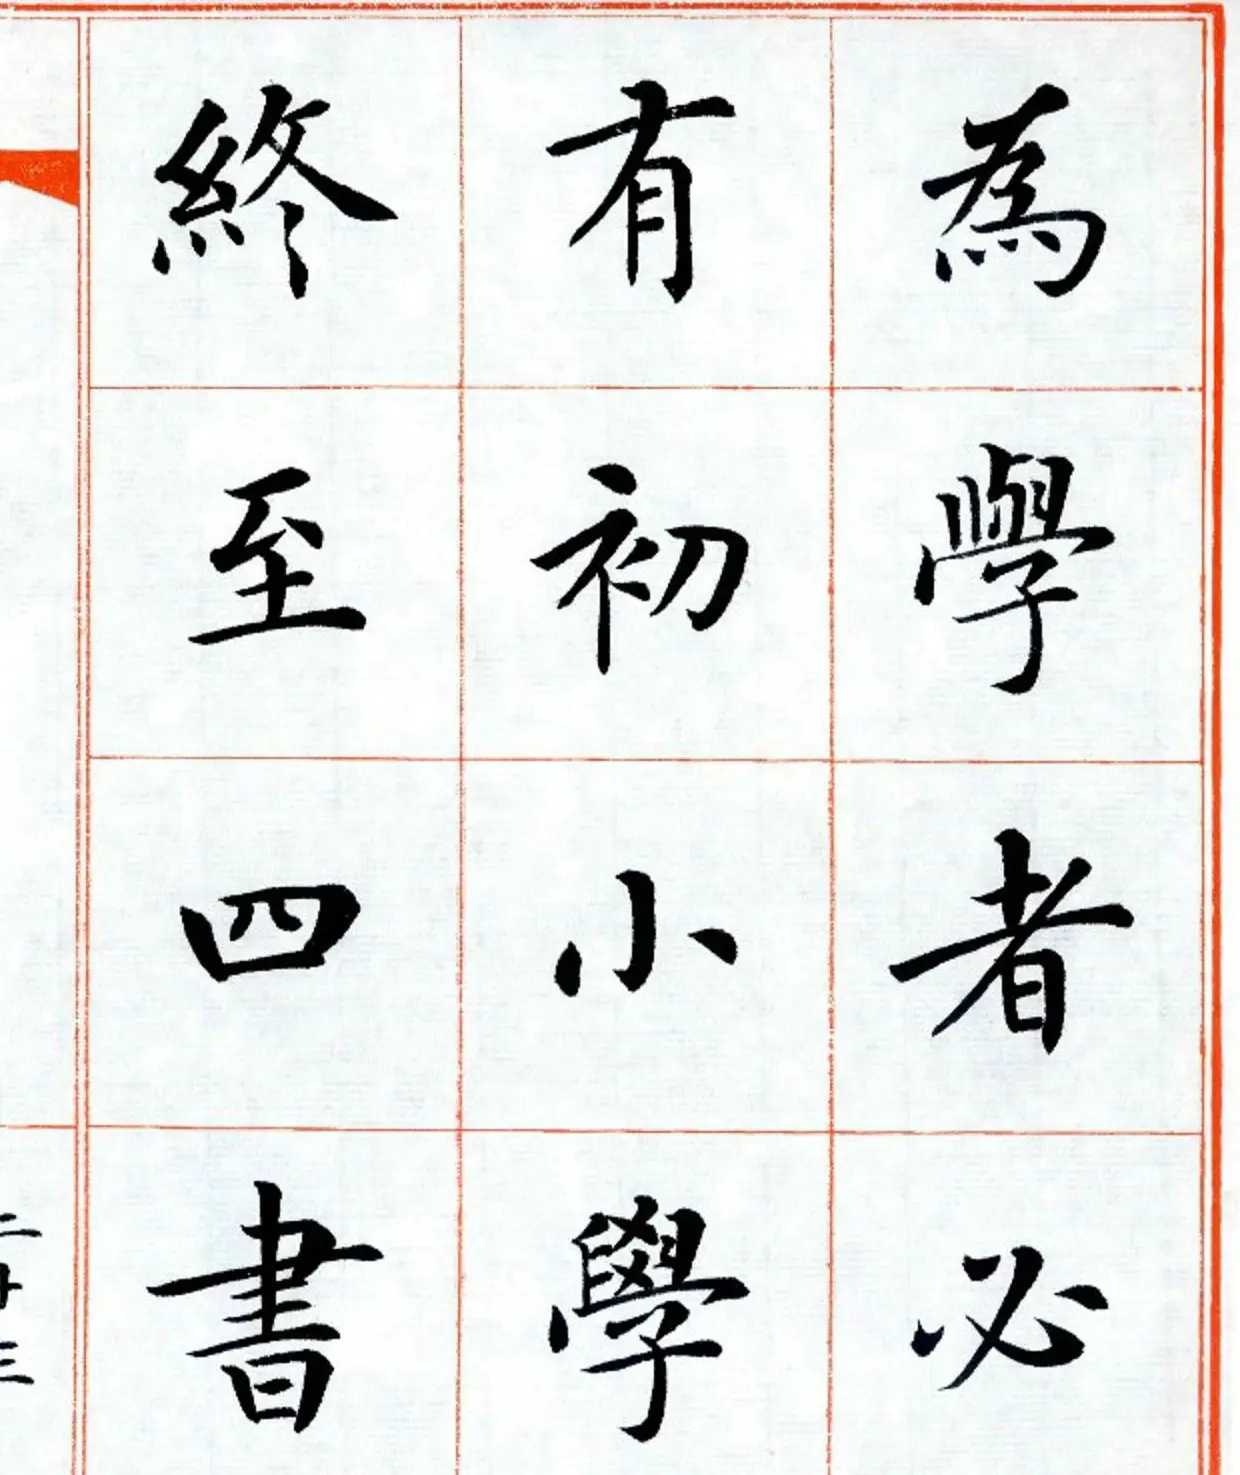 為學者必
有初小學
終至四書
二十三